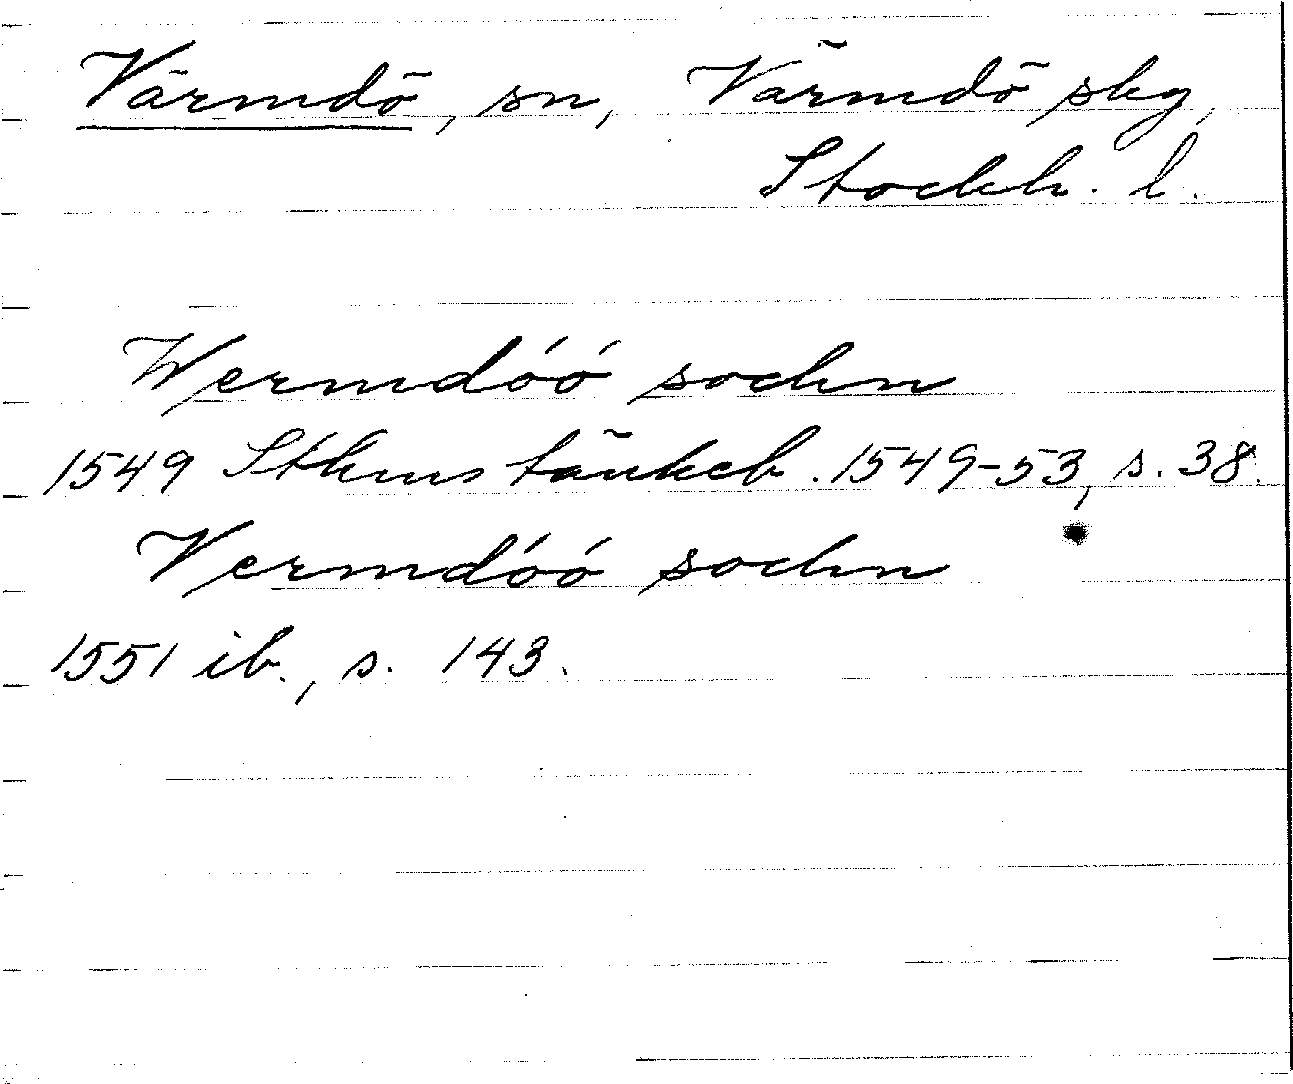 Värmdö, sn, Värmdö skg,
Stockh. l.
Wermdóó sockn
1549 Sthms tänkeb. 1549-53, s. 38.
Vermdóó sockn
1551 ib., s. 143.